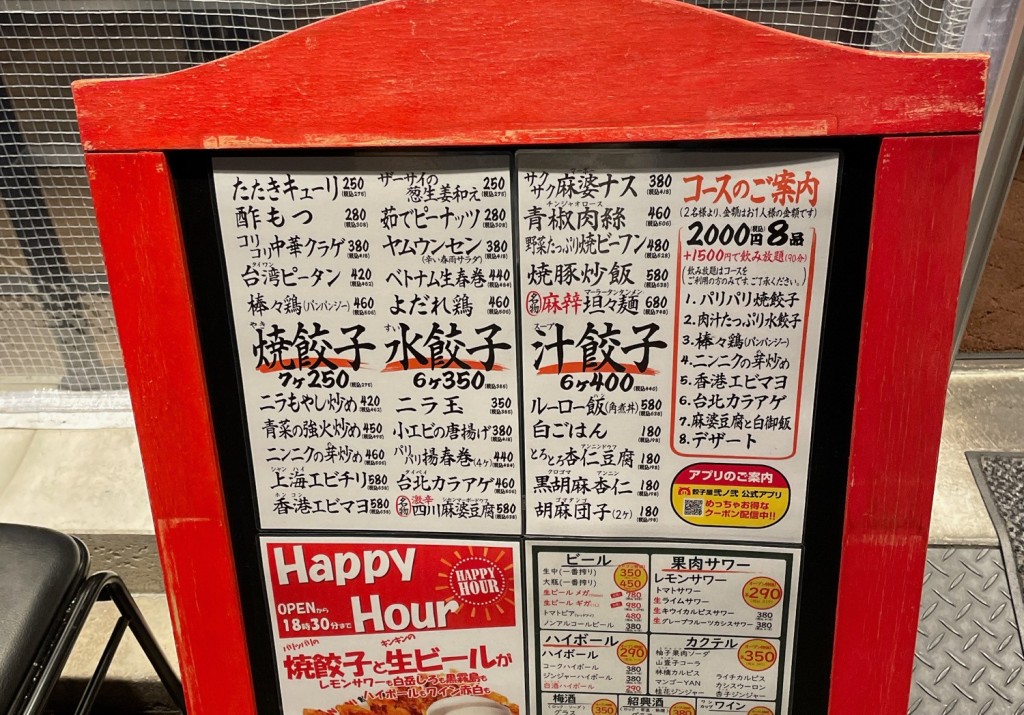 たたきキューリ 250
酢もつ 280
コリコリ中華クラゲ 380
台湾ピータン 420
タイワン
棒々鶏(バンバンジー) 460
ザーサイの
葱生姜和え 250
茹でピーナッツ 280
ヤムウンセン 380
(辛い春雨サラダ)
ベトナム生春巻 440
よだれ鶏 460
やき
焼餃子
7ヶ250
すい
水餃子
6ヶ350
ニラもやし炒め 420
青菜の強火炒め 450
ニンニクの芽炒め 460
シャンハイ
上海エビチリ 580
ホンコン
香港エビマヨ 580
ニラ玉 350
小エビの唐揚げ 380
パリパリ揚春巻(4ヶ) 440
タイペイ
台北カラアゲ 460
名物 激辛 四川麻婆豆腐 580
サクサク麻婆ナス 380
チンジャオロース
青椒肉絲 460
野菜たっぷり焼ビーフン 480
焼豚炒飯 580
マーラータンタンメン
名物 麻辣坦々麺 680
スープ
汁餃子
6ヶ400
ルーロー飯(角煮丼) 580
白ごはん 180
アンニンドウフ
とろとろ杏仁豆腐 180
クロゴマ アンニン
黒胡麻杏仁 180
ゴマダンゴ
胡麻団子(2ヶ) 180
コースのご案内
(2名様より、金額はお1人様の金額です)
2000円(税込)8品
+1500円で飲み放題(90分)
(飲み放題はコースを
ご利用の方のみです。ご了承ください。)
1. パリパリ焼餃子
2. 肉汁たっぷり水餃子
3. 棒々鶏(バンバンジー)
4. ニンニクの芽炒め
5. 香港エビマヨ
6. 台北カラアゲ
7. 麻婆豆腐と白御飯
8. デザート
アプリのご案内
餃子屋弐ノ弐 公式アプリ
めっちゃお得な
クーポン配信中!!
Happy
Hour
HAPPY
HOUR
OPENから
18時30分まで
パリッパリの
キンキンの
焼餃子と生ビールが
レモンサワーも白岳しろも黒霧島も
ハイボールもワイン赤白も
ビール
生中(一番搾り) 350
大瓶(一番搾り) 450
生ビール メガ 780
生ビール ギガ 980
トマトビア 480
ノンアルコールビール 380
果肉サワー
レモンサワー
トマトサワー
290
生ライムサワー
生キウイカルピスサワー 380
生グレープフルーツカシスサワー 380
ハイボール
ハイボール 290
コークハイボール 380
ジンジャーハイボール 380
白酒ハイボール 290
カクテル
柚子果肉ソーダ
山査子コーラ
林檎カルピス
マンゴーYAN
桂花ジンジャー
350
ライチカルピス
カシスウーロン
杏子ジンジャー
梅酒
グラス 350
紹興酒
380
ワイン